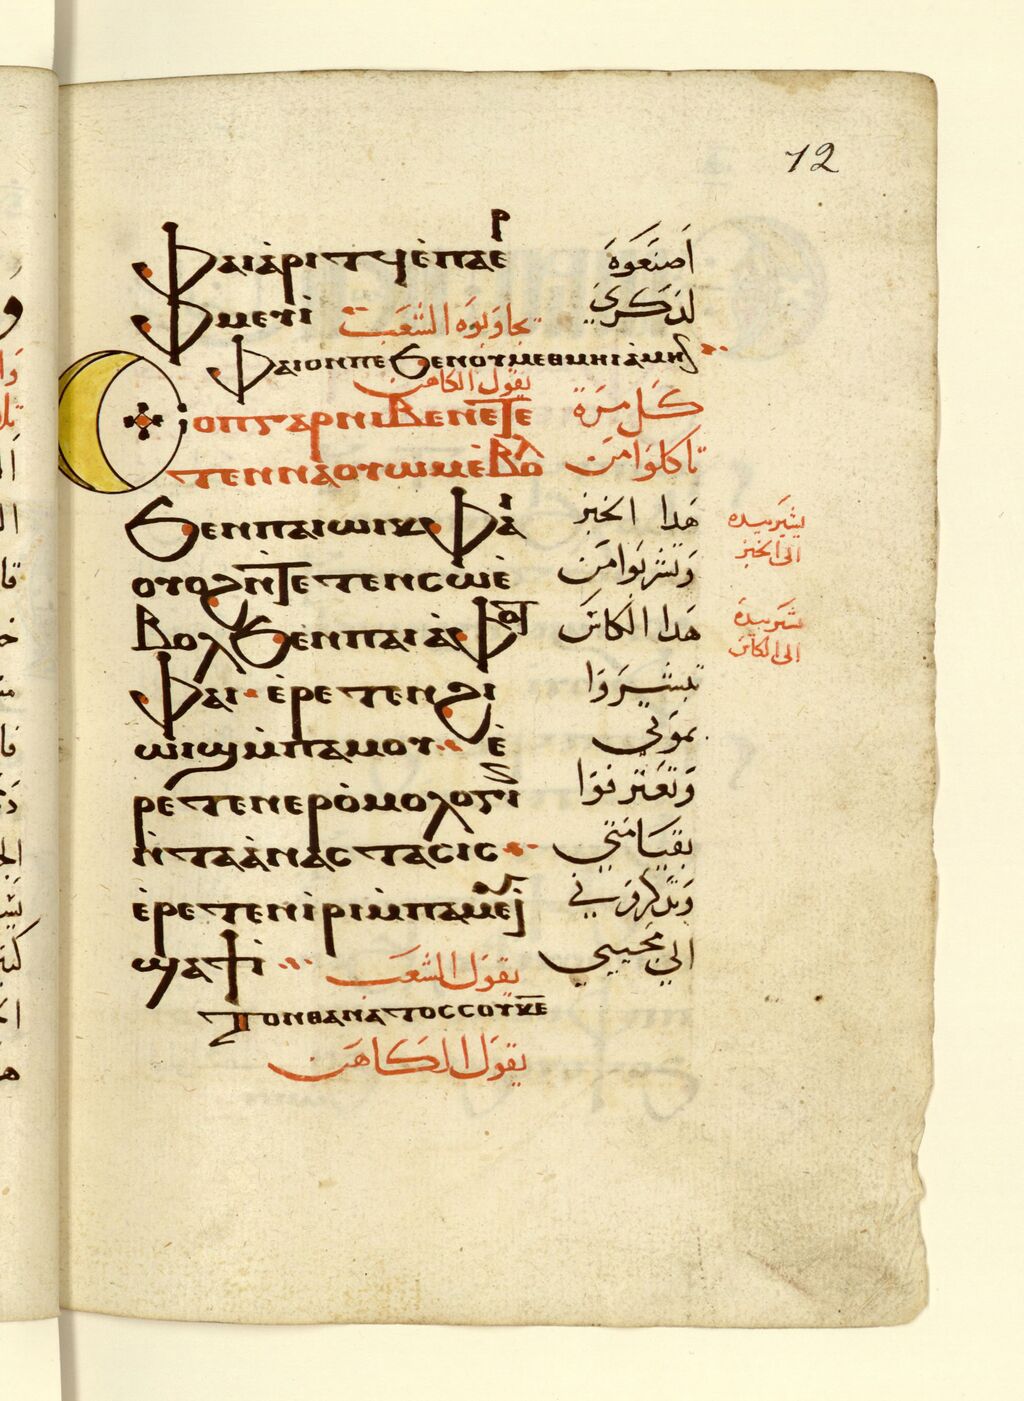 12
ⲫⲁⲓ ⲁ̀ⲣⲓⲧϥ ⲉ̀ⲡⲁⲉⲣ
ⲫⲙⲉⲩⲓ
اصنعوه
لذكري
يجاوبوه الشعب
ⲫⲁⲓ ⲟⲛ ⲡⲉ ϧⲉⲛ ⲟⲩⲙⲉⲑⲙⲏⲓ ⲁ̀ⲙⲏⲛ
يقول الكاهن
ⲥⲟⲡ ⲅⲁⲣ ⲛⲓⲃⲉⲛ ⲉ̀ⲧⲉ
كل مرة
ⲧⲉⲛⲛⲁⲟⲩⲱⲙ ⲉ̀ⲃⲟⲗ
تاكلوا من
ϧⲉⲛ ⲡⲁⲓ ⲱⲓⲕ ⲫⲁⲓ
هدا الخبز
يشير بيده
الى الخبز
ⲟⲩⲟϩ ⲛ̀ⲧⲉⲧⲉⲛⲥⲱ ⲉ̀
وتشربوا من
ⲃⲟⲗ ϧⲉⲛ ⲡⲁⲓ ⲁ̀ⲫⲟⲧ
هدا الكاس
يشير بيده
الى الكاس
ⲫⲁⲓ ⲉ̀ⲣⲉⲧⲉⲛϩⲓ
تبشيروا
ⲱⲓϣ ⲙ̀ⲡⲁⲙⲟⲩ ⲉ̀
بموتي
ⲣⲉⲧⲉⲛⲉⲣⲟ̀ⲙⲟⲗⲟⲅⲓⲛ
وتعترفوا
ⲛ̀ⲧⲁⲁ̀ⲛⲁⲥⲧⲁⲥⲓⲥ
بقيامتي
ⲉ̀ⲣⲉⲧⲉⲛⲓ̀ⲣⲓ ⲙ̀ⲡⲁⲙⲉⲩⲓ
وتذكروني
ϣⲁϯⲓ̀
الي مجيي
يقول الشعب
ⲧⲟⲛ ⲑⲁⲛⲁⲧⲟⲥ ⲥⲟⲩ ⲕⲉ
يقول الكاهن